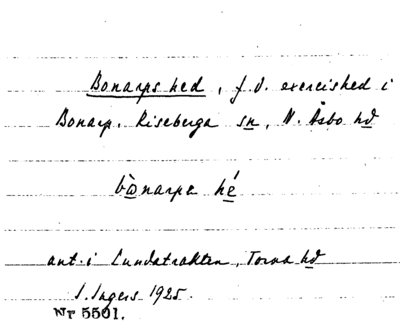 Bonarps hed, f.d. exercished i
Bonarp, Riseberga sn, N. Åsbo hd
bònarpa hé
ant. i Lundatrakten, Torna hd
I. Ingers 1925.
Nr 5501.